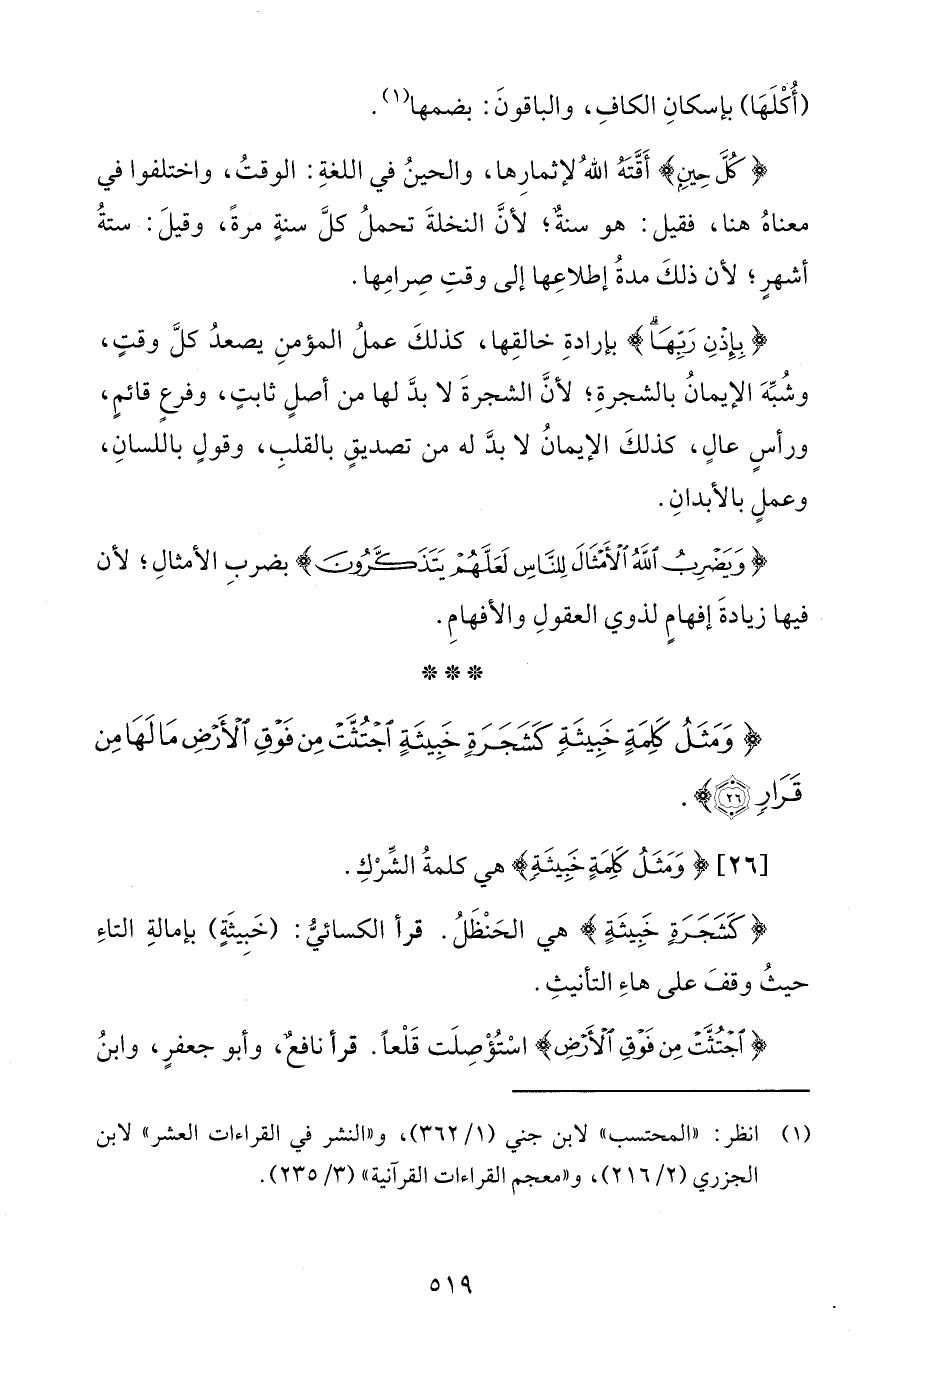 (أُكْلَهَا) بإسكانِ الكافِ، والباقونَ: بضمها(١).
﴿كُلَّ حِينٍ﴾ أَقَّتَهُ اللهُ لإثمارِها، والحينُ في اللغةِ: الوقتُ، واختلفوا في
معناهُ هنا، فقيل: هو سنةٌ؛ لأنَّ النخلةَ تحملُ كلَّ سنةٍ مرةً، وقيلَ: ستةُ
أشهرٍ؛ لأن ذلكَ مدةُ إطلاعِها إلى وقتِ صِرامِها.
﴿بِإِذْنِ رَبِّهَاۗ﴾ بإرادةِ خالقِها، كذلكَ عملُ المؤمنِ يصعدُ كلَّ وقتٍ،
وشُبِّهَ الإيمانُ بالشجرةِ؛ لأنَّ الشجرةَ لا بدَّ لها من أصلٍ ثابتٍ، وفرعٍ قائمٍ،
ورأسٍ عالٍ، كذلكَ الإيمانُ لا بدَّ له من تصديقٍ بالقلبِ، وقولٍ باللسانِ،
وعملٍ بالأبدانِ.
﴿وَيَضْرِبُ ٱللَّهُ ٱلْأَمْثَالَ لِلنَّاسِ لَعَلَّهُمْ يَتَذَكَّرُونَ﴾ بضربِ الأمثالِ؛ لأن
فيها زيادةَ إفهامٍ لذوي العقولِ والأفهامِ.
***
﴿وَمَثَلُ كَلِمَةٍ خَبِيثَةٍ كَشَجَرَةٍ خَبِيثَةٍ ٱجْتُثَّتْ مِن فَوْقِ ٱلْأَرْضِ مَا لَهَا مِن
قَرَارٍ ٢٦﴾.
[٢٦] ﴿وَمَثَلُ كَلِمَةٍ خَبِيثَةٍ﴾ هي كلمةُ الشِّرْكِ.
﴿كَشَجَرَةٍ خَبِيثَةٍ﴾ هي الحَنْظَلُ. قرأ الكسائيُّ: (خَبِيثَةٍ) بإمالةِ التاءِ
حيثُ وقفَ على هاءِ التأنيثِ.
﴿ٱجْتُثَّتْ مِن فَوْقِ ٱلْأَرْضِ﴾ اسْتُؤْصِلَت قَلْعاً. قرأ نافعٌ، وأبو جعفرٍ، وابنُ
(١) انظر: «المحتسب» لابن جني (١/ ٣٦٢)، و«النشر في القراءات العشر» لابن
الجزري (٢/ ٢١٦)، و«معجم القراءات القرآنية» (٣/ ٢٣٥).
٥١٩